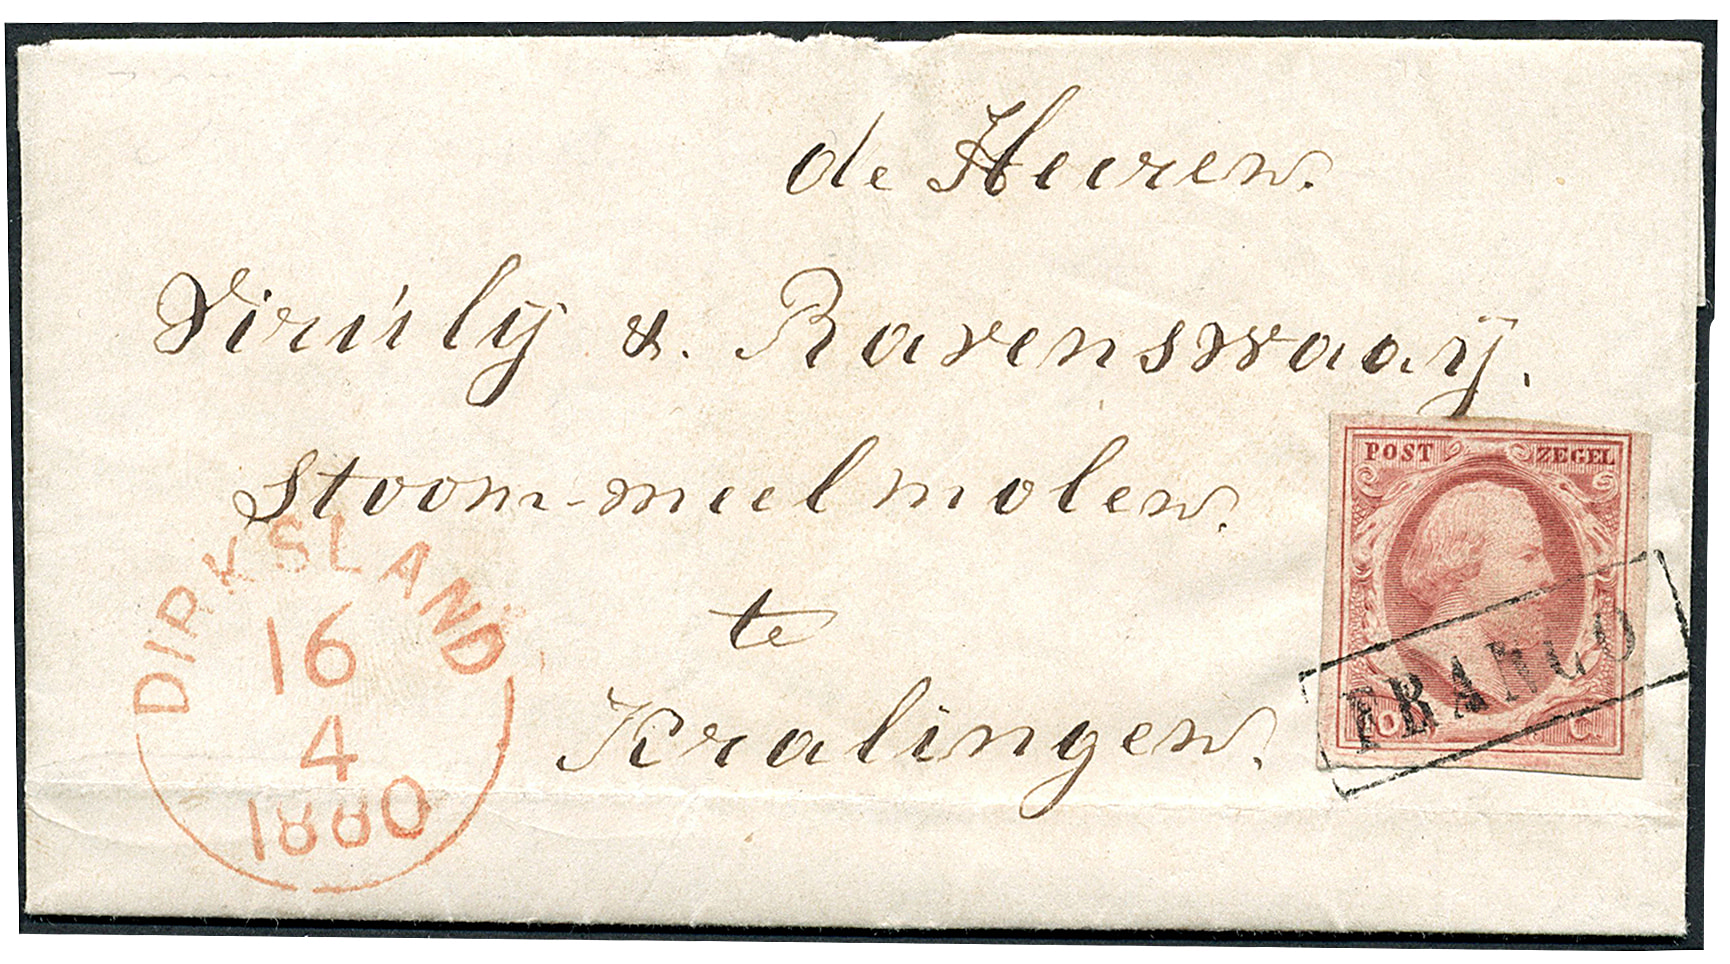 de Heeren.
Virúly & Ravenswaaÿ.
Stoom-meelmolen.
te
Kralingen.
POST ZEGEL
10 C.
FRANCO
DIRKSLAND
16
4
1860